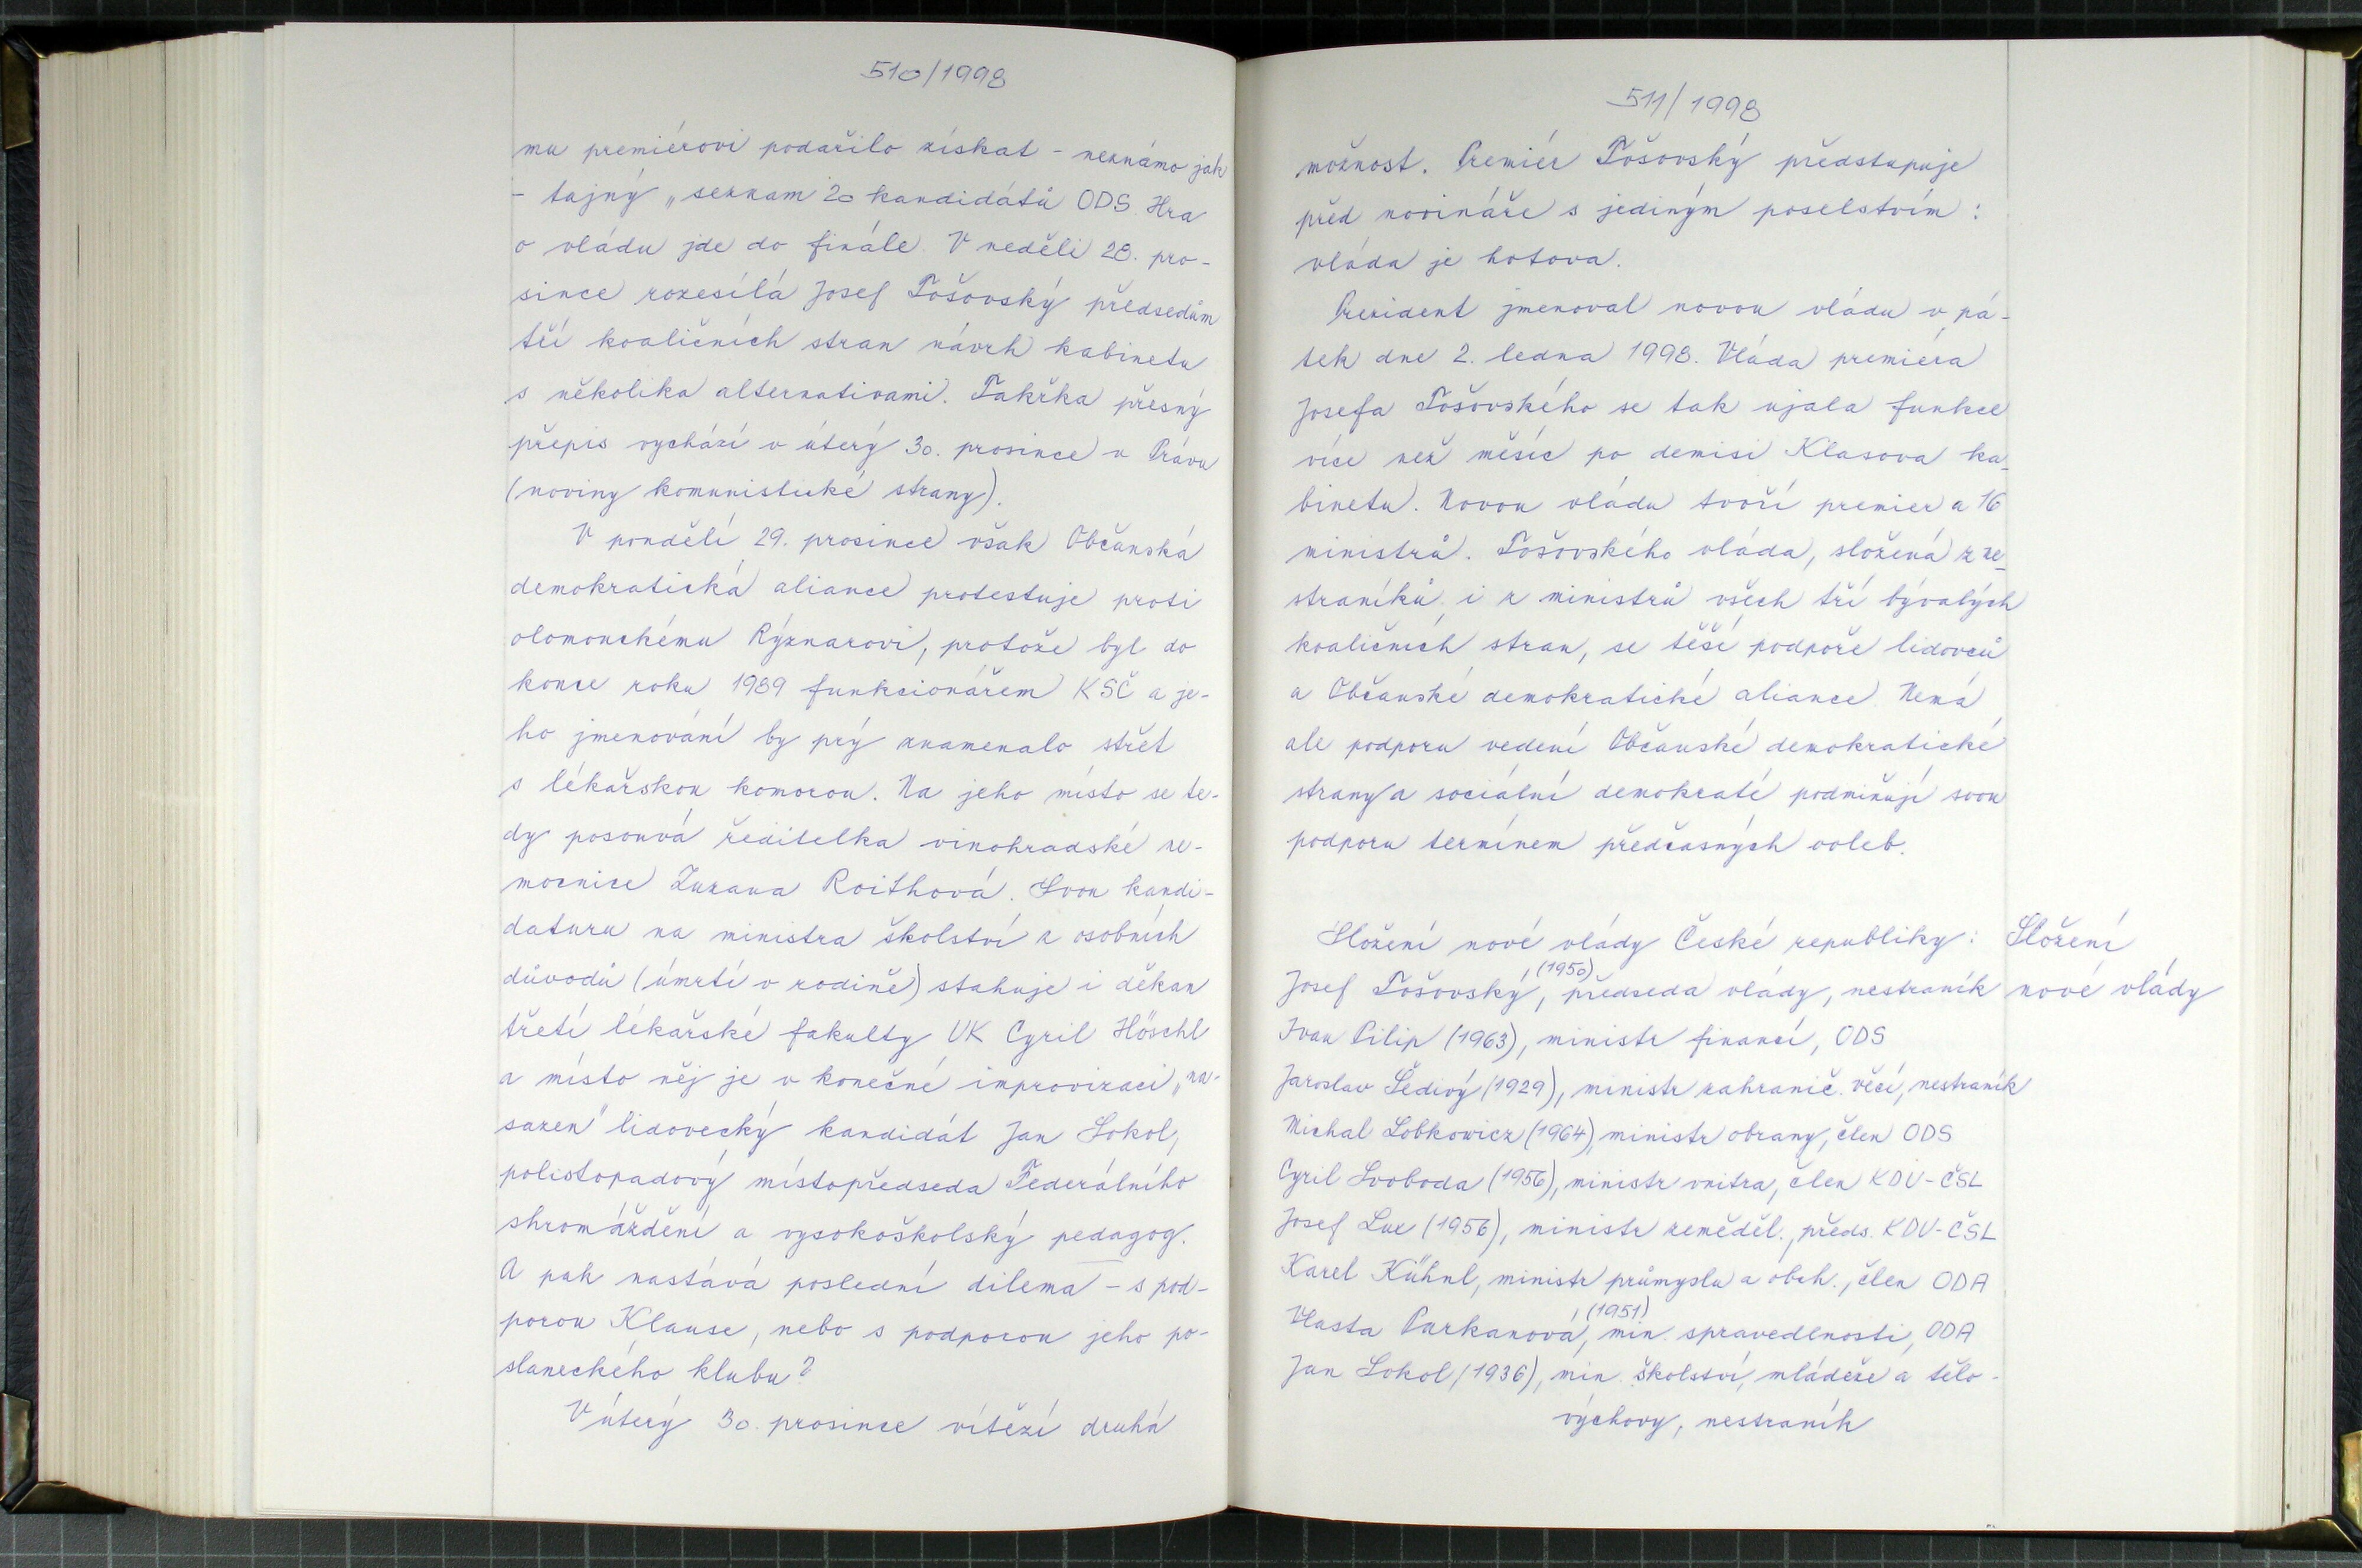 510/1998
mu premiérovi podařilo získat - neznámo jak
- tajný „seznam 20 kandidátů ODS. Hra
o vládu jde do finále. V neděli 28. pro-
since rozesílá Josef Tošovský předsedům
tří koaličních stran návrh kabinetu
s několika alternativami. Takřka přesný
přepis vychází v úterý 30. prosince v Právu
(noviny komunistické strany).
V pondělí 29. prosince však Občanská
demokratická aliance protestuje proti
olomouckému Rýznarovi, protože byl do
konce roku 1989 funkcionářem KSČ a je-
ho jmenování by prý znamenalo střet
s lékařskou komorou. Na jeho místo se te-
dy posouvá ředitelka vinohradské ne-
mocnice Zuzana Roithová. Svou kandi-
daturu na ministra školství z osobních
důvodů (úmrtí v rodině) stahuje i děkan
třetí lékařské fakulty UK Cyril Höschl
a místo něj je v konečné improvizaci „na-
sazen" lidovecký kandidát Jan Sokol,
polistopadový místopředseda Federálního
shromáždění a vysokoškolský pedagog.
A pak nastává poslední dilema - s pod-
porou Klause, nebo s podporou jeho po-
slaneckého klubu?
V úterý 30. prosince vítězí druhá
511/1998
možnost. Premiér Tošovský předstupuje
před novináře s jediným poselstvím:
vláda je hotova.
Prezident jmenoval novou vládu v pá-
tek dne 2. ledna 1998. Vláda premiéra
Josefa Tošovského se tak ujala funkce
více než měsíc po demisi Klasova ka-
binetu. Novou vládu tvoří premier a 16
ministrů. Tošovského vláda, složená z ne-
straníků i z ministrů všech tří bývalých
koaličních stran, se těší podpoře lidovců
a Občanské demokratické aliance. Nemá
ale podporu vedení Občanské demokratické
strany a sociální demokraté podmiňují svou
podporu termínem předčasných voleb.
Složení nové vlády České republiky:
Složení
nové vlády
Josef Tošovský, (1950), předseda vlády, nestraník
Ivan Pilip (1963), ministr financí, ODS
Jaroslav Šedivý (1929), ministr zahranič. věcí, nestraník
Michal Lobkowicz (1964), ministr obrany, člen ODS
Cyril Svoboda (1956), ministr vnitra, člen KDU-ČSL
Josef Lux (1956), ministr zeměděl., předs. KDU-ČSL
Karel Kühnl, ministr průmyslu a obch., člen ODA
Vlasta Parkanová, (1951), min. spravedlnosti, ODA
Jan Sokol (1936), min. školství, mládeže a tělo-
výchovy, nestraník